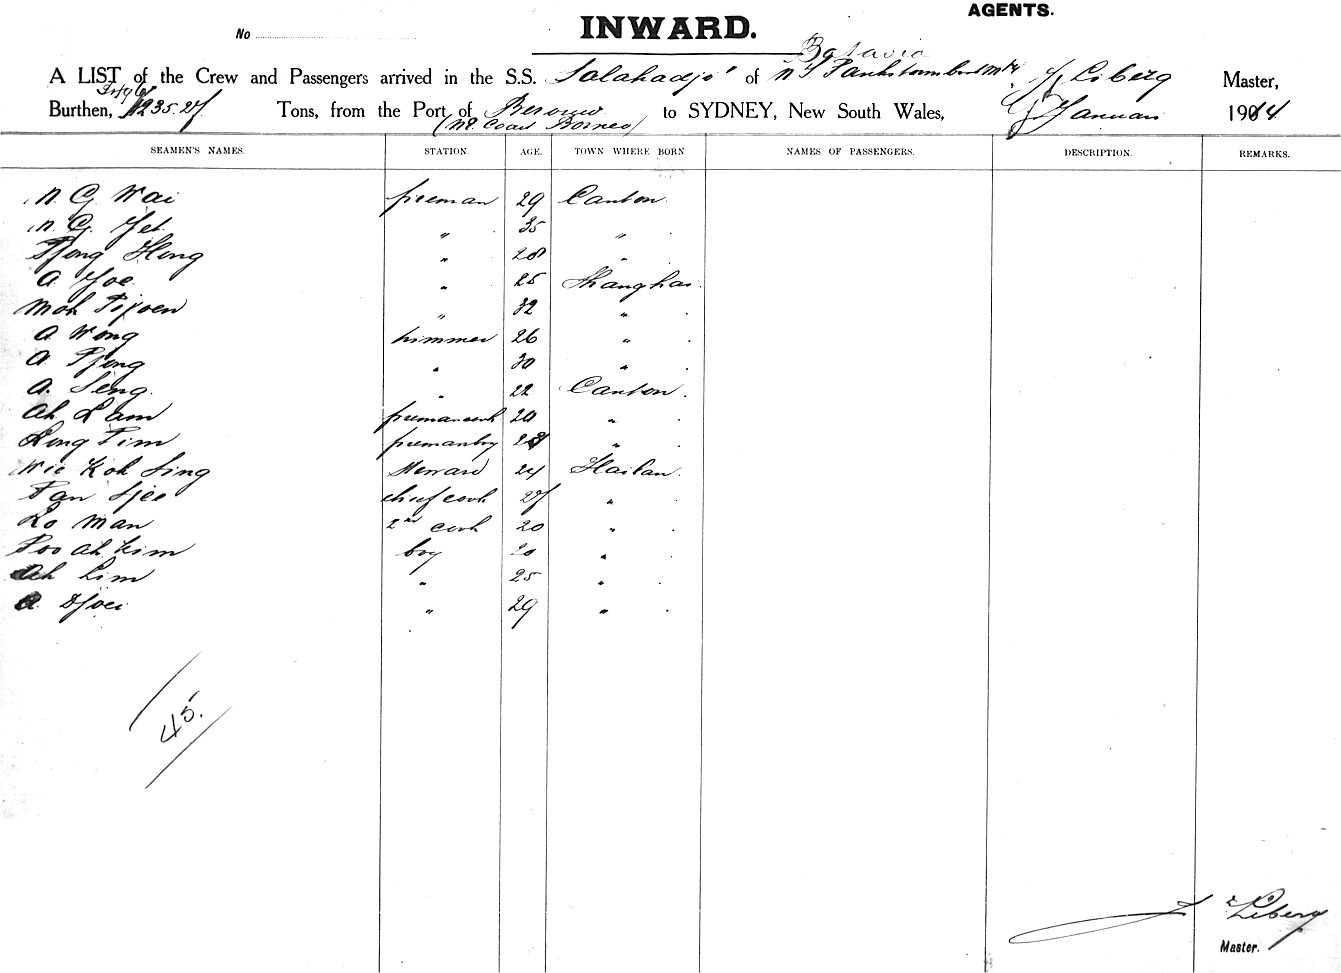 AGENTS.
No
INWARD.
Batavia
A LIST of the Crew and Passengers arrived in the S.S. Salahadji of J Liberg Master,
Burthen, 1235.27 Tons, from the Port of Berouw to SYDNEY, New South Wales, Januari 1914
(N.E. Coast Borneo)
SEAMEN'S NAMES. STATION. AGE. TOWN WHERE BORN NAMES OF PASSENGERS. DESCRIPTION. REMARKS.
N. G. Wai fireman 29 Canton
N. G. Jet " 35 "
Tjong Hong " 28 "
A Joe " 25 Shanghai
Moh Tijoen " 32 "
A Wong trimmer 26 "
A Tjong " 30 "
A. Seng " 22 Canton
Ah Lam firemancook 20 "
Long Tim firemanboy "
Wie Koh Sing Steward 24 Hailan
Tan Sjee chief cook 27 "
Lo Man 2nd cook 20 "
Foo Ah Kim boy 20 "
Ah Lim " 25 "
A. Djoei " 29 "
45.
J Liberg
Master.